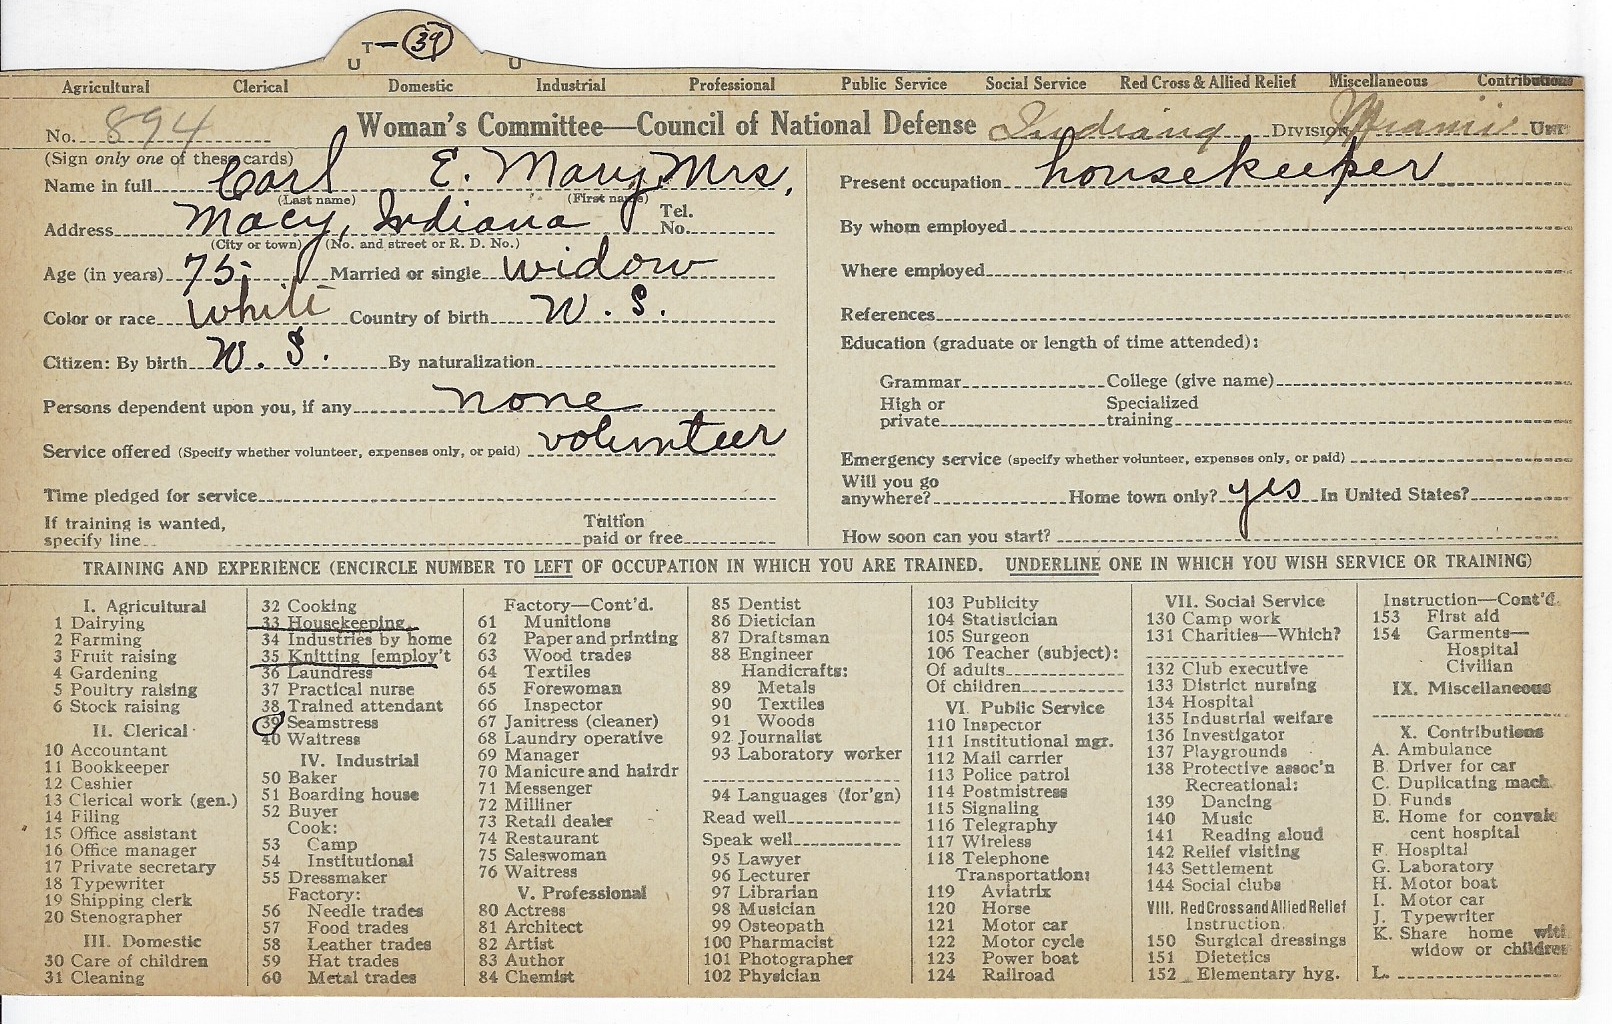 T—39
U U
Agricultural Clerical Domestic Industrial Professional Public Service Social Service Red Cross & Allied Relief Miscellaneous Contributions
No. 894 Woman's Committee—Council of National Defense Indiana DIVISION Miami UNIT
(Sign only one of these cards)
Name in full Carl E. Mary Mrs.
(Last name) (First name)
Address Macy, Indiana Tel. No.
(City or town) (No. and street or R. D. No.)
Age (in years) 75 Married or single widow
Color or race White Country of birth U. S.
Citizen: By birth U. S. By naturalization
Persons dependent upon you, if any none
Service offered (Specify whether volunteer, expenses only, or paid) volunteer
Time pledged for service
If training is wanted, specify line Tuition paid or free
Present occupation housekeeper
By whom employed
Where employed
References
Education (graduate or length of time attended):
Grammar College (give name)
High or private Specialized training
Emergency service (specify whether volunteer, expenses only, or paid)
Will you go anywhere? Home town only? yes In United States?
How soon can you start?
TRAINING AND EXPERIENCE (ENCIRCLE NUMBER TO LEFT OF OCCUPATION IN WHICH YOU ARE TRAINED. UNDERLINE ONE IN WHICH YOU WISH SERVICE OR TRAINING)
I. Agricultural
1 Dairying
2 Farming
3 Fruit raising
4 Gardening
5 Poultry raising
6 Stock raising
II. Clerical
10 Accountant
11 Bookkeeper
12 Cashier
13 Clerical work (gen.)
14 Filing
15 Office assistant
16 Office manager
17 Private secretary
18 Typewriter
19 Shipping clerk
20 Stenographer
III. Domestic
30 Care of children
31 Cleaning
32 Cooking
33 Housekeeping
34 Industries by home
35 Knitting [employ't
36 Laundress
37 Practical nurse
38 Trained attendant
39 Seamstress
40 Waitress
IV. Industrial
50 Baker
51 Boarding house
52 Buyer
Cook:
53 Camp
54 Institutional
55 Dressmaker
Factory:
56 Needle trades
57 Food trades
58 Leather trades
59 Hat trades
60 Metal trades
Factory—Cont'd.
61 Munitions
62 Paper and printing
63 Wood trades
64 Textiles
65 Forewoman
66 Inspector
67 Janitress (cleaner)
68 Laundry operative
69 Manager
70 Manicure and hairdr
71 Messenger
72 Milliner
73 Retail dealer
74 Restaurant
75 Saleswoman
76 Waitress
V. Professional
80 Actress
81 Architect
82 Artist
83 Author
84 Chemist
85 Dentist
86 Dietician
87 Draftsman
88 Engineer
Handicrafts:
89 Metals
90 Textiles
91 Woods
92 Journalist
93 Laboratory worker
94 Languages (for'gn)
Read well
Speak well
95 Lawyer
96 Lecturer
97 Librarian
98 Musician
99 Osteopath
100 Pharmacist
101 Photographer
102 Physician
103 Publicity
104 Statistician
105 Surgeon
106 Teacher (subject):
Of adults
Of children
VI. Public Service
110 Inspector
111 Institutional mgr.
112 Mail carrier
113 Police patrol
114 Postmistress
115 Signaling
116 Telegraphy
117 Wireless
118 Telephone
Transportation:
119 Aviatrix
120 Horse
121 Motor car
122 Motor cycle
123 Power boat
124 Railroad
VII. Social Service
130 Camp work
131 Charities—Which?
132 Club executive
133 District nursing
134 Hospital
135 Industrial welfare
136 Investigator
137 Playgrounds
138 Protective assoc'n
Recreational:
139 Dancing
140 Music
141 Reading aloud
142 Relief visiting
143 Settlement
144 Social clubs
VIII. Red Cross and Allied Relief
Instruction.
150 Surgical dressings
151 Dietetics
152 Elementary hyg.
Instruction—Cont'd.
153 First aid
154 Garments—
Hospital
Civilian
IX. Miscellaneous
X. Contributions
A. Ambulance
B. Driver for car
C. Duplicating mach.
D. Funds
E. Home for convales
cent hospital
F. Hospital
G. Laboratory
H. Motor boat
I. Motor car
J. Typewriter
K. Share home with
widow or children
L.